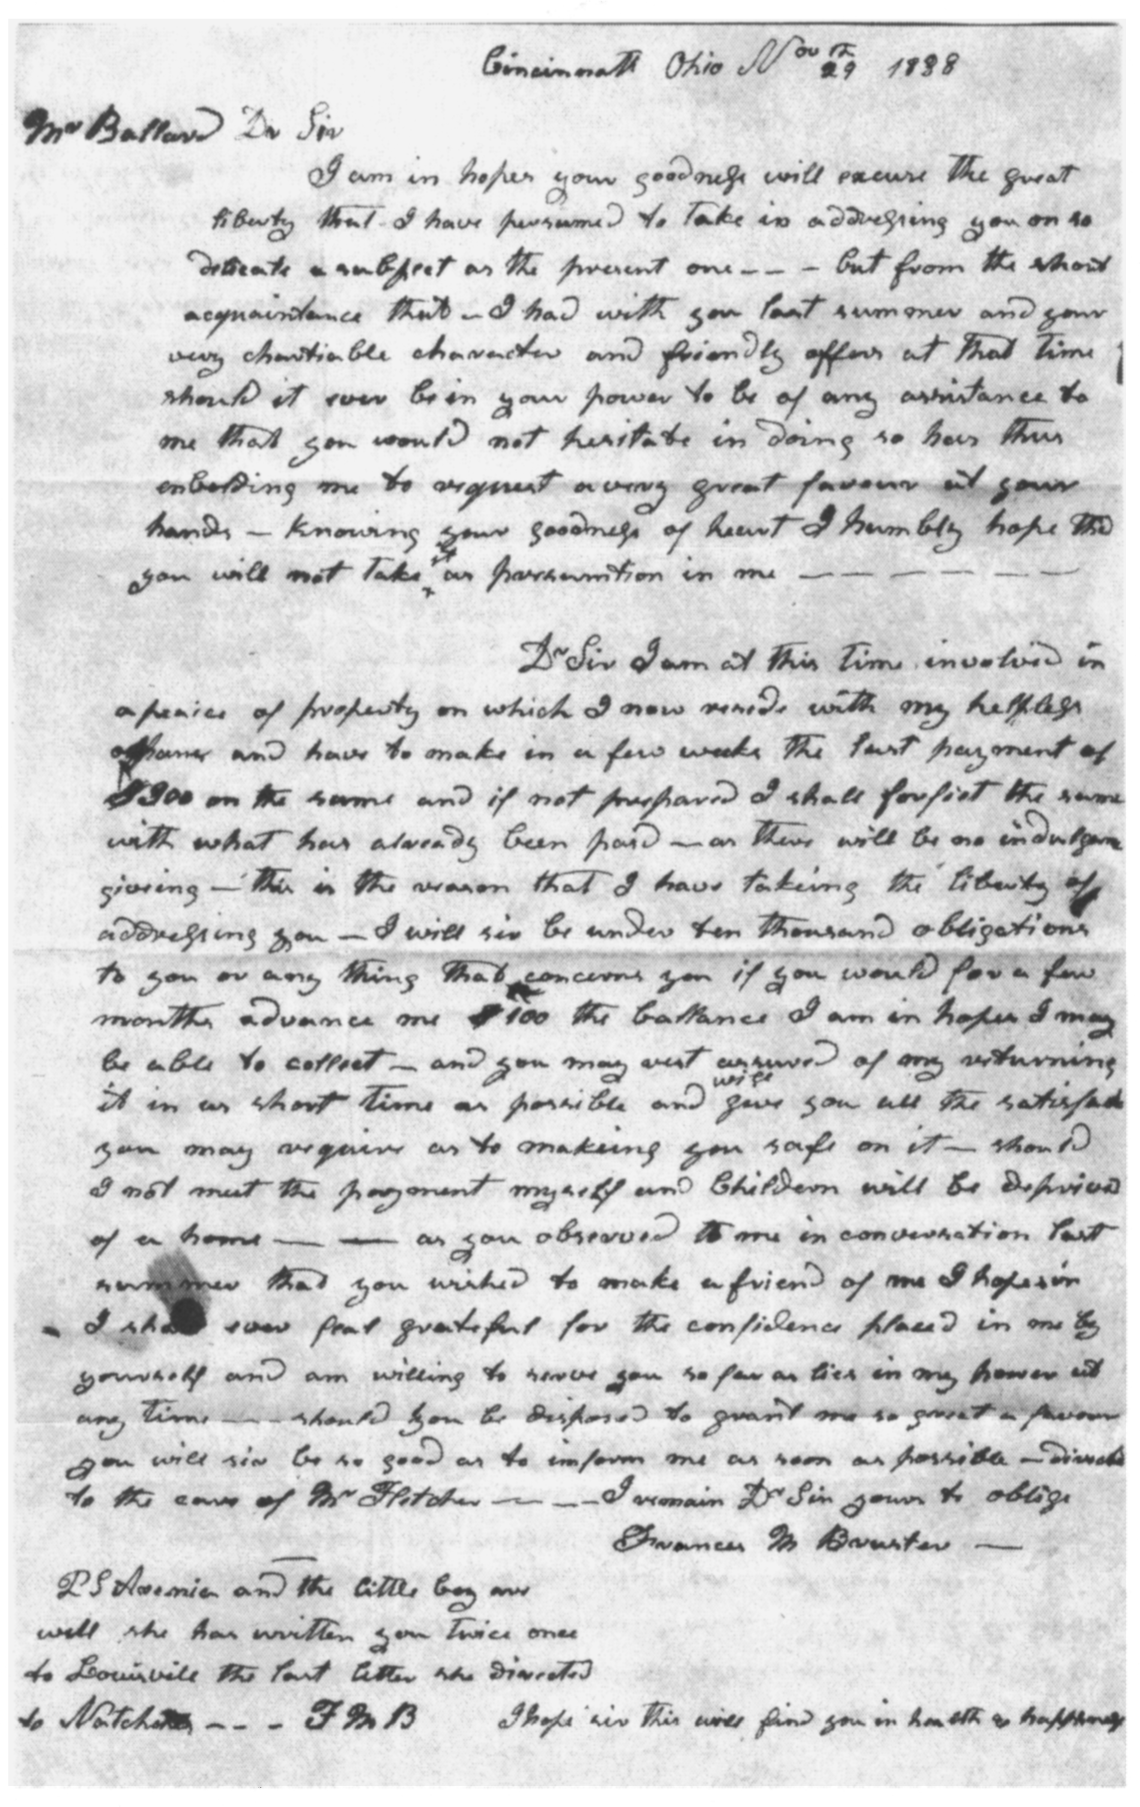 Cincinnatti Ohio Nov 29th 1838
Mr Ballard Dr Sir
I am in hopes your goodness will excuse the great
liberty that I have persumed to take in addressing you on so
delicate a subject as the present one - - - but from the short
acquaintance that - I had with you last summer and your
very charitiable character and friendly offers at that time
should it ever be in your power to be of any assistance to
me that you would not hesitate in doing so has thus
enbolding me to request a very great favour at your
hands - Knowing your goodness of heart I humbly hope that
you will not take it as persumtion in me - - - - - -
Dr Sir I am at this time involved in
a peaice of property on which I now reside with my helpless
and have to make in a few weeks the last payment of
on the same and if not prepared I shall forfiet the same
with what has already been paid - as there will be no indulgence
giveing - this is the reason that I have takeing the liberty of
addressing you - I will sir be under ten thousand obligations
to you or any thing that concerns you if you would for a few
months advance me $100 the ballance I am in hopes I may
be able to collect - and you may rest assured of my returning
it in as short time as possible and will give you all the satisfact
you may require as to makeing you safe on it - should
I not meet the payment myself and Children will be deprived
of a home - - as you observed to me in conversation last
summer that you wished to make a friend of me I hope sir
I shall ever feal grateful for the confidence placed in me by
yourself and am willing to serve you so far as lies in my power at
any time - - should you be disposed to grant me so great a favour
you will sir be so good as to imform me as soon as possible - direct
to the care of Mr Fletcher - - - I remain Dr Sir yours to oblige
Frances M Bruster -
P S Avenia and the little boy are
well she has written you twice once
to Louisvill the last letter she directed
to Natches - - - F M B I hope sir this will find you in health & happiness